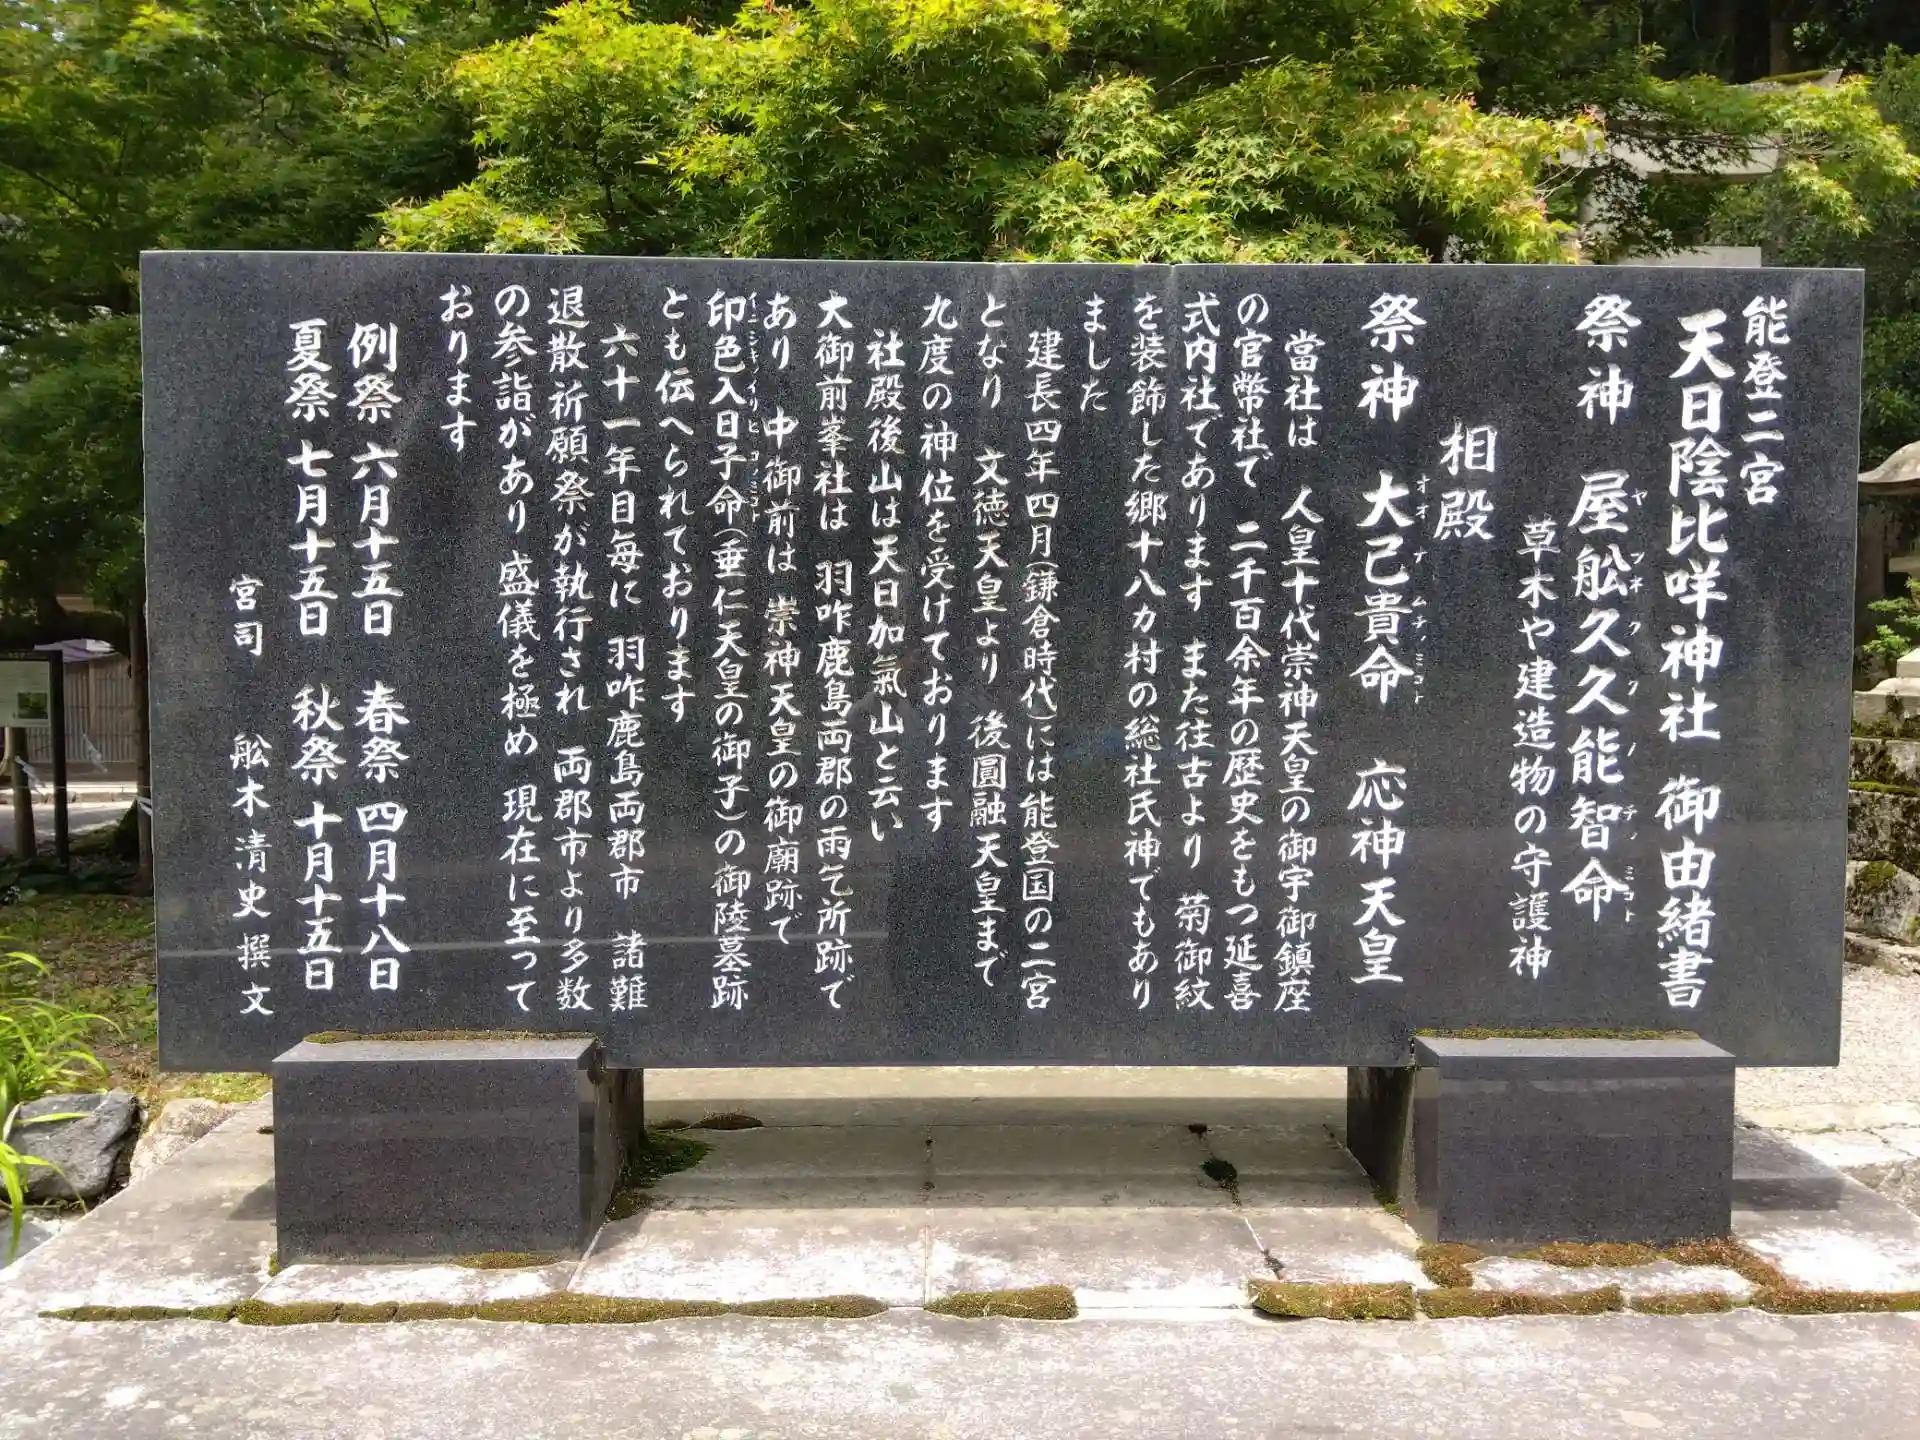 能登二宮
天日陰比咩神社 御由緒書
祭神 屋舩久久能智命
ヤフネククノチノミコト
草木や建造物の守護神
相殿
祭神 大己貴命 応神天皇
オオナムチノミコト
當社は 人皇十代崇神天皇の御宇御鎮座
の官幣社で 二千百余年の歴史をもつ延喜
式内社であります また往古より 菊御紋
を装飾した郷十八カ村の総社氏神でもあり
ました
建長四年四月(鎌倉時代)には能登国の二宮
となり 文徳天皇より 後圓融天皇まで
九度の神位を受けております
社殿後山は天日加氣山と云い
大御前峯社は 羽咋鹿島両郡の雨乞所跡で
あり 中御前は 崇神天皇の御廟跡で
イニシキノイリヒコノミコト
印色入日子命(垂仁天皇の御子)の御陵墓跡
とも伝へられております
六十一年目毎に 羽咋鹿島両郡市 諸難
退散祈願祭が執行され 両郡市より多数
の参詣があり盛儀を極め 現在に至って
おります
例祭 六月十五日 春祭 四月十八日
夏祭 七月十五日 秋祭 十月十五日
宮司 舩木清史 撰文